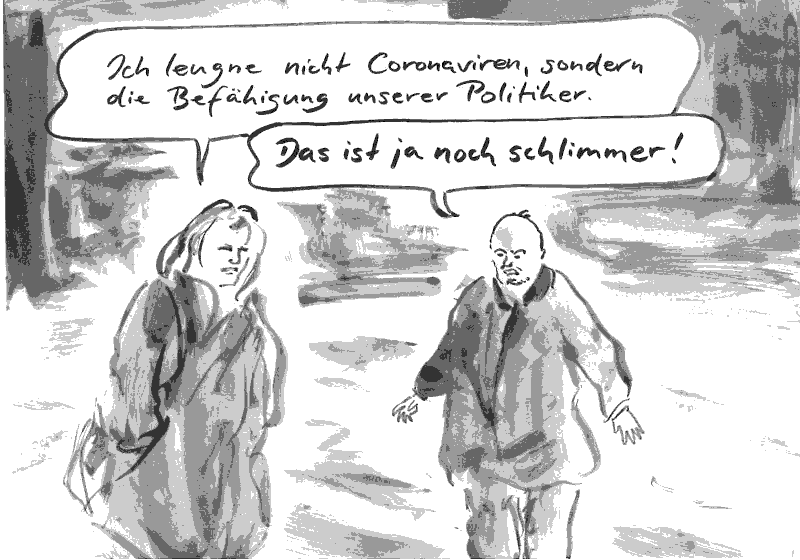 Ich leugne nicht Coronaviren, sondern
die Befähigung unserer Politiker.
Das ist ja noch schlimmer!